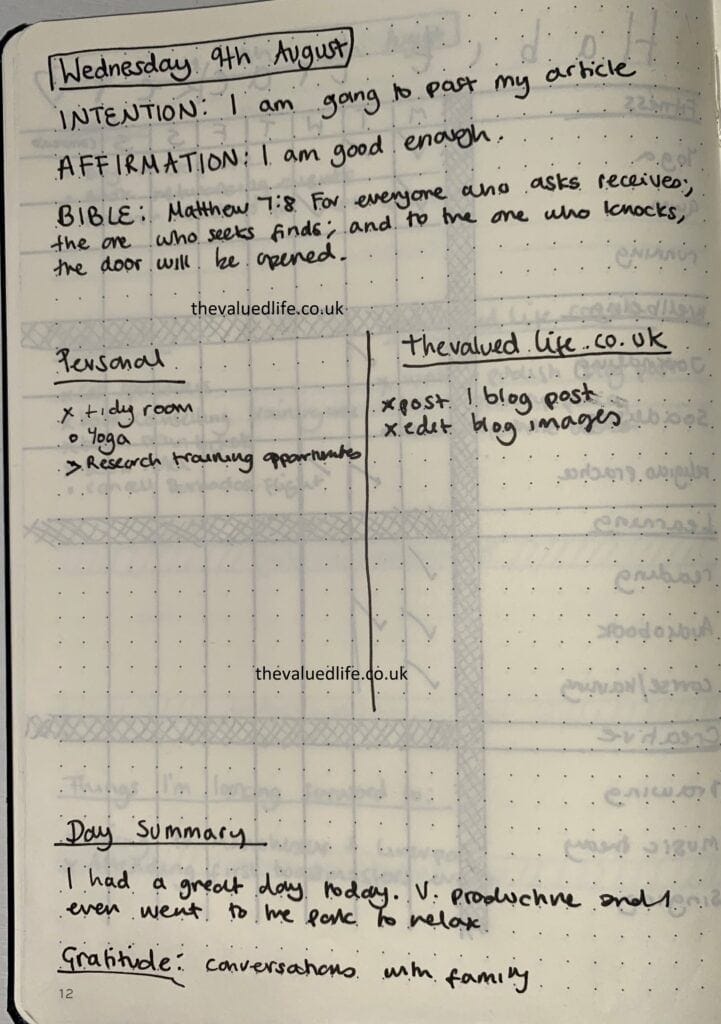 Wednesday 9th August
INTENTION: I am going to post my article
AFFIRMATION: I am good enough.
BIBLE: Matthew 7:8 For everyone who asks receives;
the one who seeks finds; and to the one who knocks,
the door will be opened.
thevaluedlife.co.uk
Personal
x tidy room
o Yoga
> Research training opportunities
thevalued life.co.uk
x post 1 blog post
x edit blog images
thevaluedlife.co.uk
Day Summary
I had a great day today. V. productive and I
even went to the park to relax.
Gratitude: conversations with family
12